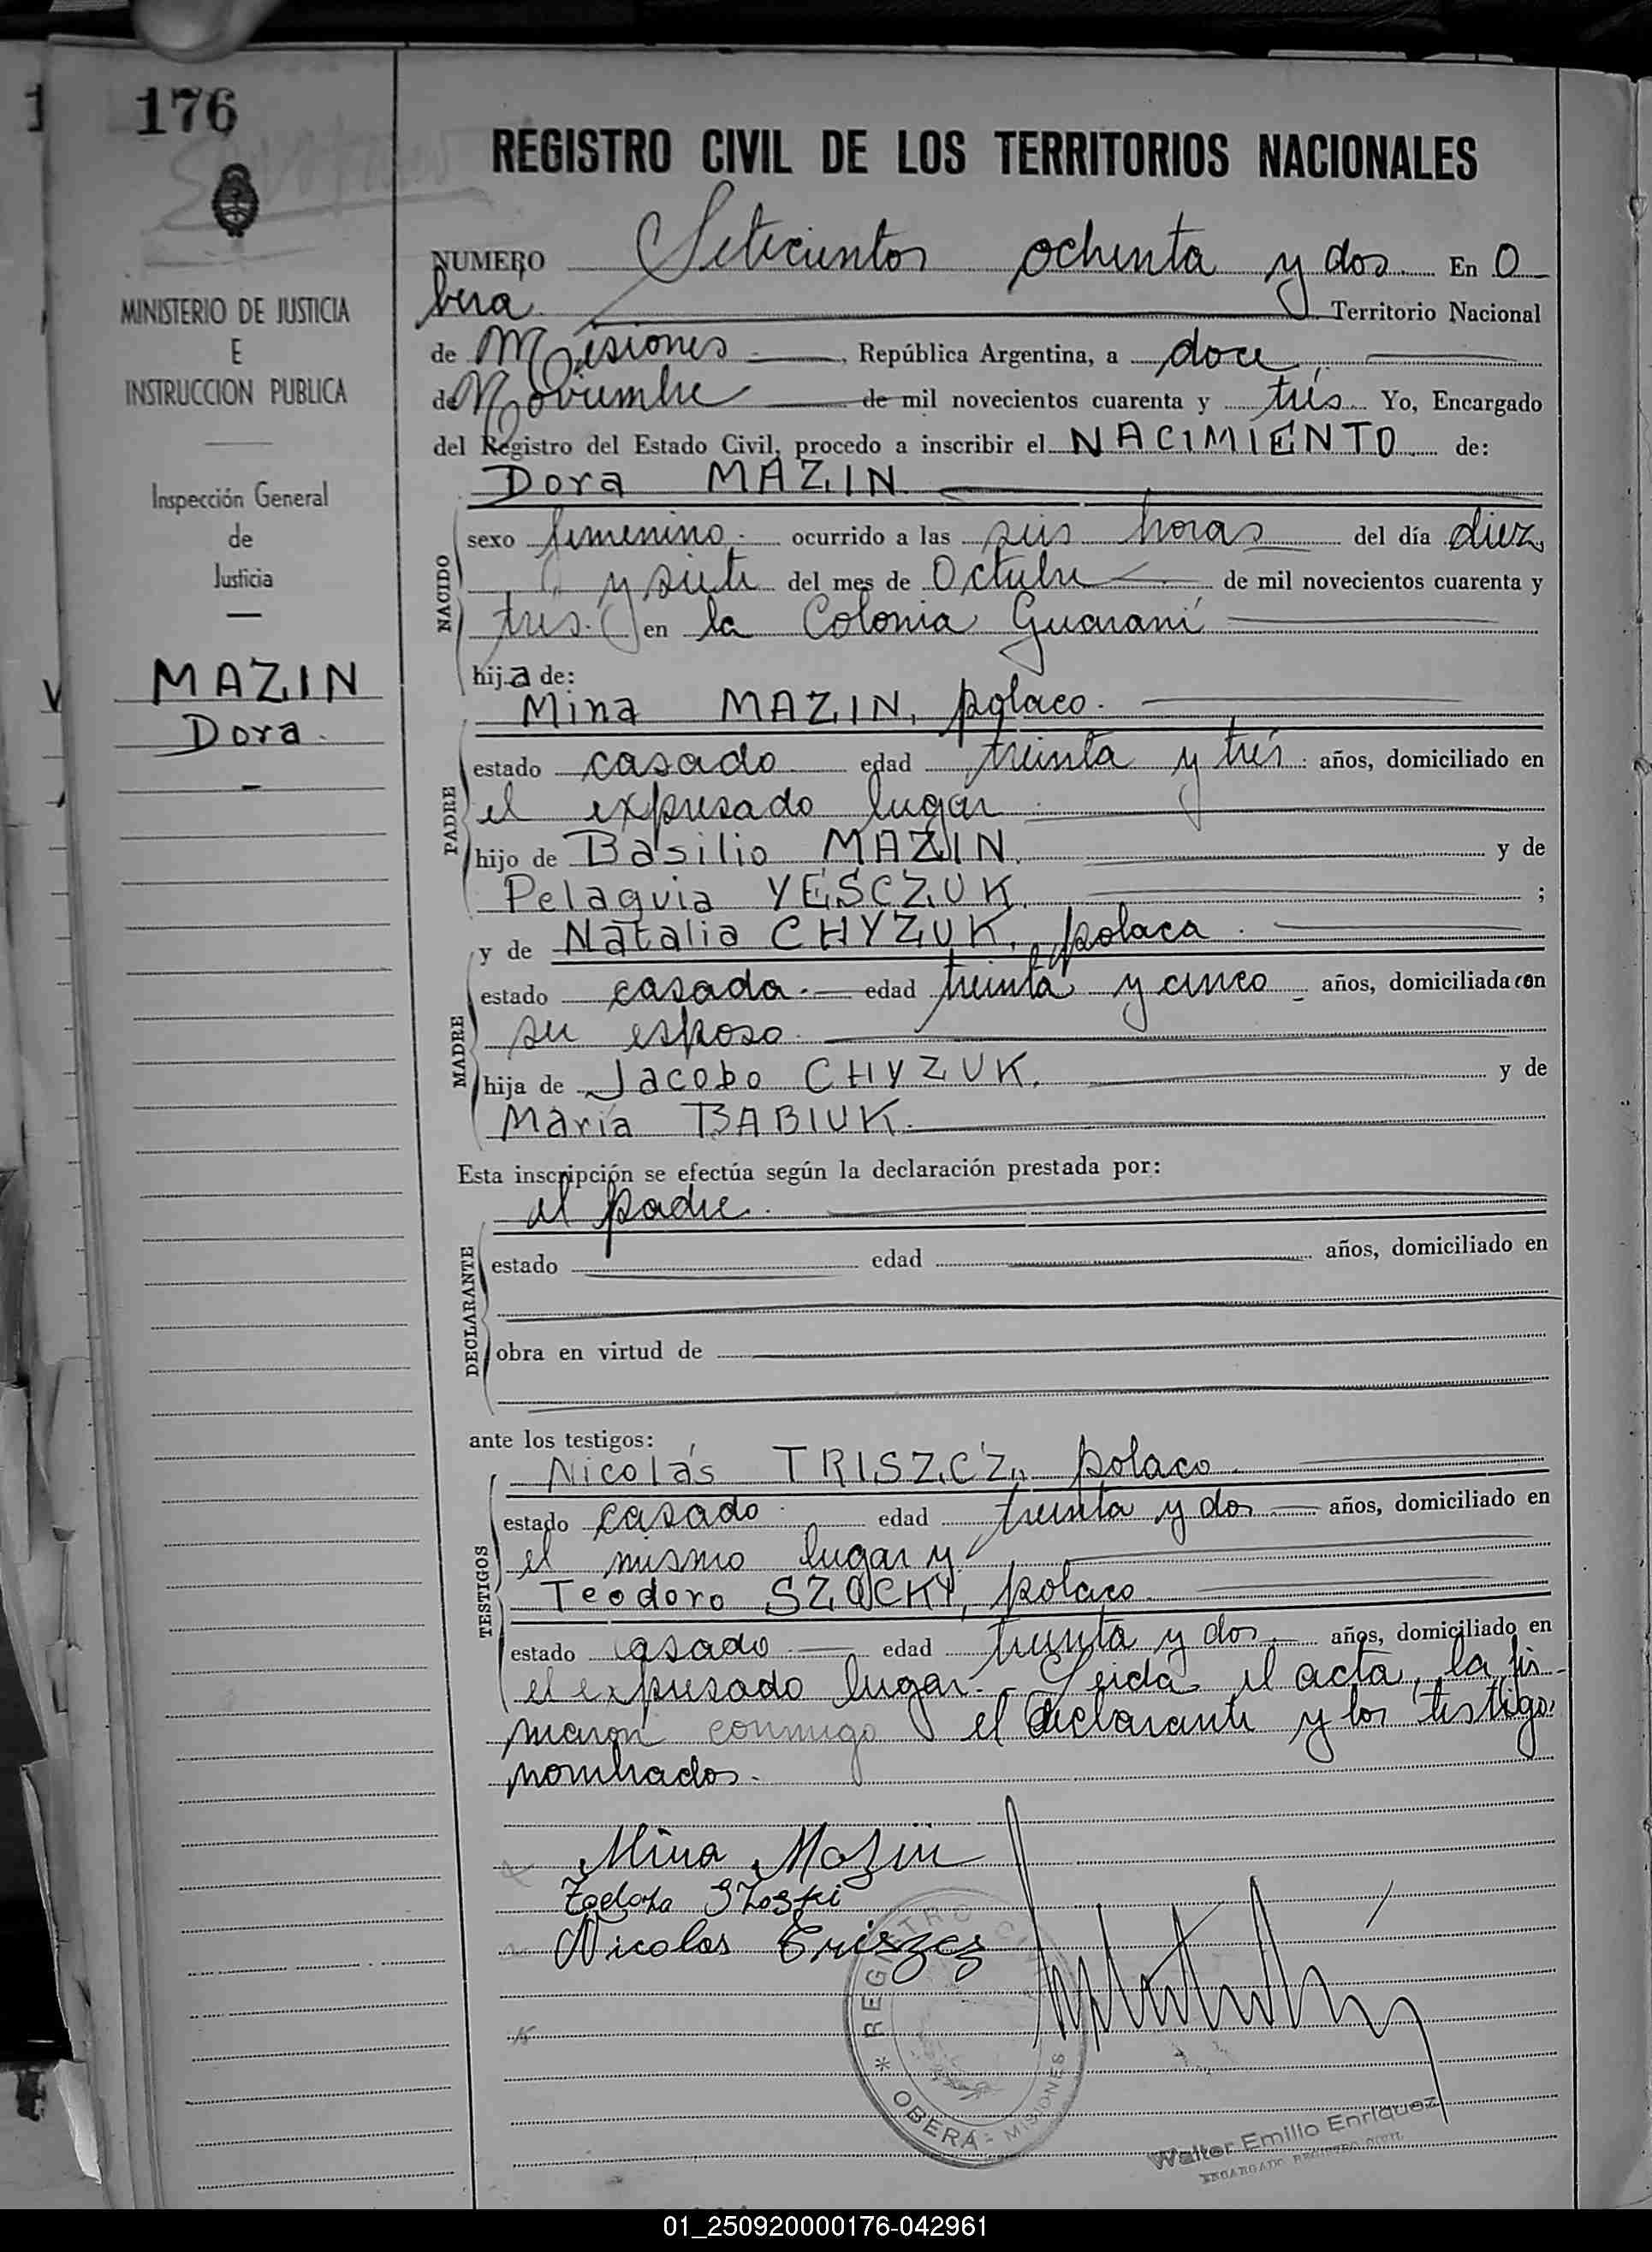 176
MINISTERIO DE JUSTICIA
E
INSTRUCCION PUBLICA
Inspección General
de
Justicia
MAZIN
Dora.
REGISTRO CIVIL DE LOS TERRITORIOS NACIONALES
NUMERO Setecientos ochenta y dos En O
bera Territorio Nacional
de Misiones, República Argentina, a doce
de Noviembre de mil novecientos cuarenta y trés Yo, Encargado
del Registro del Estado Civil, procedo a inscribir el NACIMIENTO de:
Dora MAZIN.
NACIDO
sexo femenino.- ocurrido a las seis horas del día diez
y siete del mes de Octubre de mil novecientos cuarenta y
trés. en la Colonia Guaraní
hija de:
Mina MAZIN, polaco.
PADRE
estado casado edad treinta y trés. años, domiciliado en
el expresado lugar.
hijo de Basilio MAZIN, y de
Pelaguia YESCZUK, ;
y de Natalia CHYZUK, polaca.
MADRE
estado casada.- edad treinta y cinco años, domiciliada con
su esposo.
hija de Jacobo CHYZUK, y de
María BABIUK.
Esta inscripción se efectúa según la declaración prestada por:
el padre.
DECLARANTE
estado edad años, domiciliado en
obra en virtud de
ante los testigos:
Nicolás TRISZCZ, polaco.
TESTIGOS
estado casado. edad treinta y dos años, domiciliado en
el mismo lugar y
Teodoro SZOCKY, polaco.
estado casado.- edad treinta y dos, años, domiciliado en
el expresado lugar.- Leida el acta, la fir-
maron conmigo el declarante y los testigos
nombrados.-
Mina Mazin
Nicolas Triszcz
REGISTRO CIVIL
* OBERÁ - MISIONES
Walter Emilio Enriquez
ENCARGADO REGISTRO CIVIL
01_250920000176-042961